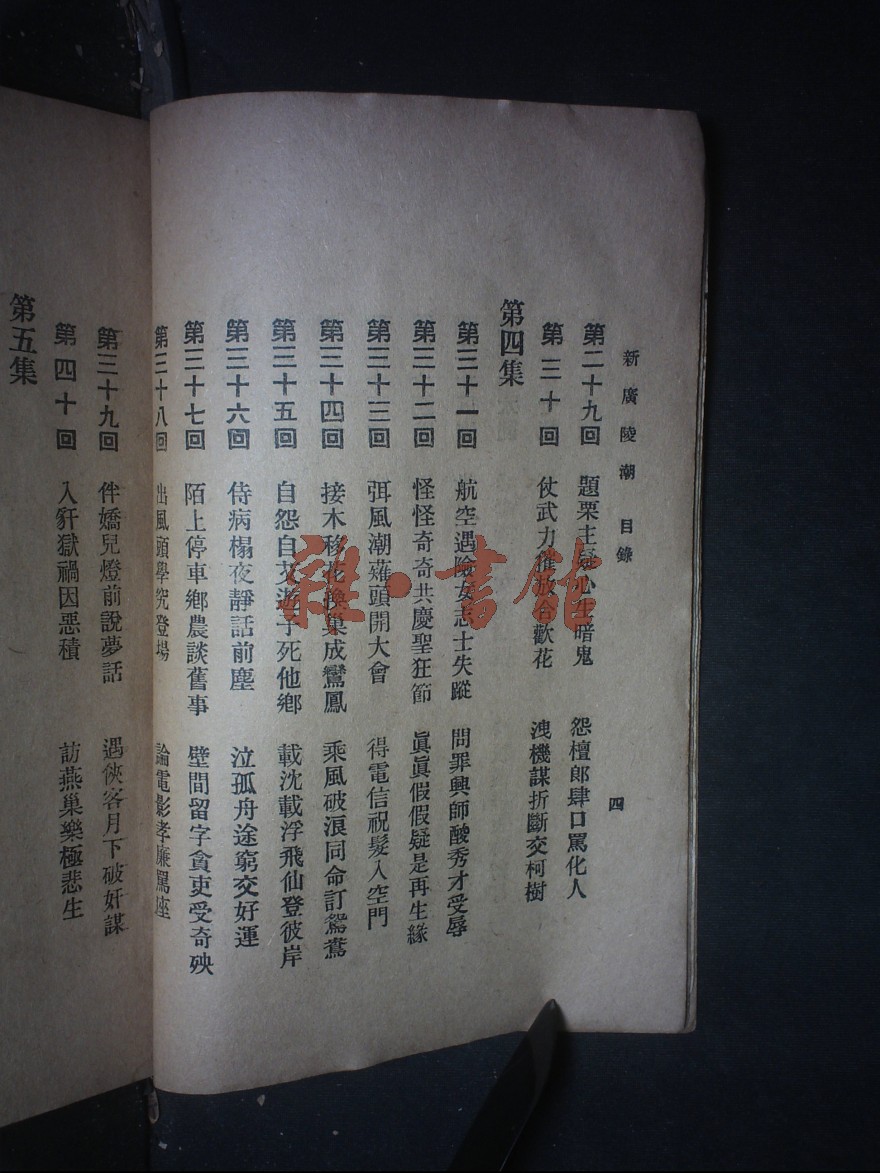 新廣陵潮 目錄 四
第二十九回 題栗主疑心生暗鬼 怨檀郎肆口罵化人
第三十回 仗武力催放合歡花 洩機謀折斷交柯樹
第四集
第三十一回 航空遇險女志士失蹤 問罪興師酸秀才受辱
第三十二回 怪怪奇奇共慶聖狂節 眞眞假假疑是再生緣
第三十三回 弭風潮薙頭開大會 得電信祝髮入空門
第三十四回 接木移花換巢成鸞鳳 乘風破浪同命訂鴛鴦
第三十五回 自怨自艾遊子死他鄉 載沈載浮飛仙登彼岸
第三十六回 侍病榻夜靜話前塵 泣孤舟途窮交好運
第三十七回 陌上停車鄉農談舊事 壁間留字貪吏受奇殃
第三十八回 出風頭學究登場 論電影孝廉罵座
第三十九回 伴嬌兒燈前說夢話 遇俠客月下破奸謀
第四十回 入豻獄禍因惡積 訪燕巢樂極悲生
第五集
雜·書館